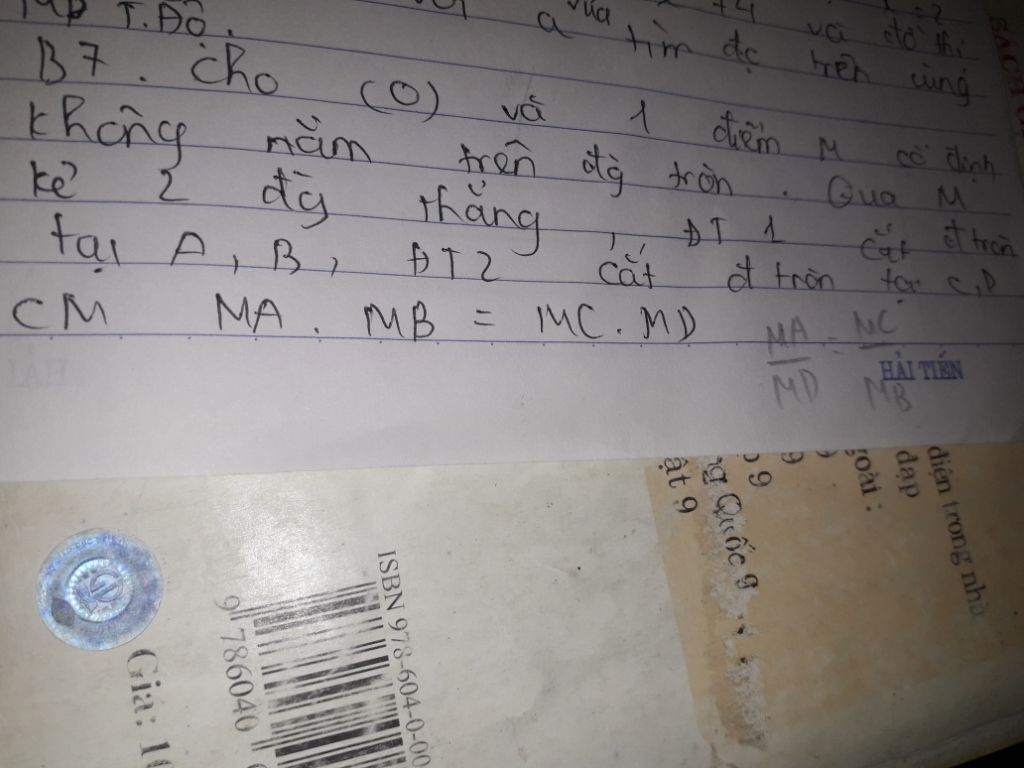 T.Độ.
a vừa tìm đc trên cùng
+4 và đồ thị
B7. Cho (O) và 1 điểm M cố định
không nằm trên đg tròn. Qua M
kẻ 2 đg thẳng, ĐT 1 cắt đ tròn
tại A, B, ĐT2 cắt đ tròn tại C, D
CM MA. MB = MC. MD
MA/MD = MC/MB
HẢI TIẾN
ISBN 978-604-0-00
9 786040
Giá: 1
ật 9
ng Quốc 9
9
goài :
đáp
điển trong nhà